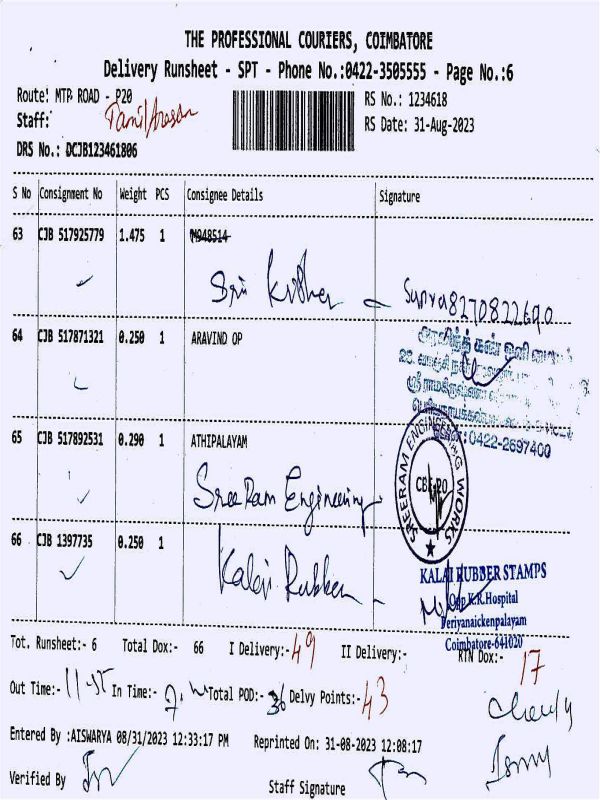 THE PROFESSIONAL COURIERS, COIMBATORE
Delivery Runsheet - SPT - Phone No.:0422-3505555 - Page No.:6
Route: MTP ROAD - P20 RS No.: 1234618
Staff: Tamil Arasan RS Date: 31-Aug-2023
DRS No.: DCJB123461806
S No Consignment No Weight PCS Consignee Details Signature
63 CJB 517925779 1.475 1 M948514
Sri 8270822690
64 CJB 517871321 0.250 1 ARAVIND OP
அரவிந்த் கண்
0422-2697400
65 CJB 517892531 0.290 1 ATHIPALAYAM
SREERAM ENGINEERING WORKS
Sree Ram Engineering
66 CJB 1397735 0.250 1
Kalai Rubber
KALAI RUBBER STAMPS
Opp K.R.Hospital
Periyanaickenpalayam
Coimbatore-641020
Tot. Runsheet:- 6 Total Dox:- 66 I Delivery:- 49 II Delivery:- RTN Dox:- 17
Out Time:- 11-45 In Time:- Total POD:- 36 Delvy Points:- 43
Entered By :AISWARYA 08/31/2023 12:33:17 PM Reprinted On: 31-08-2023 12:08:17
Verified By Staff Signature